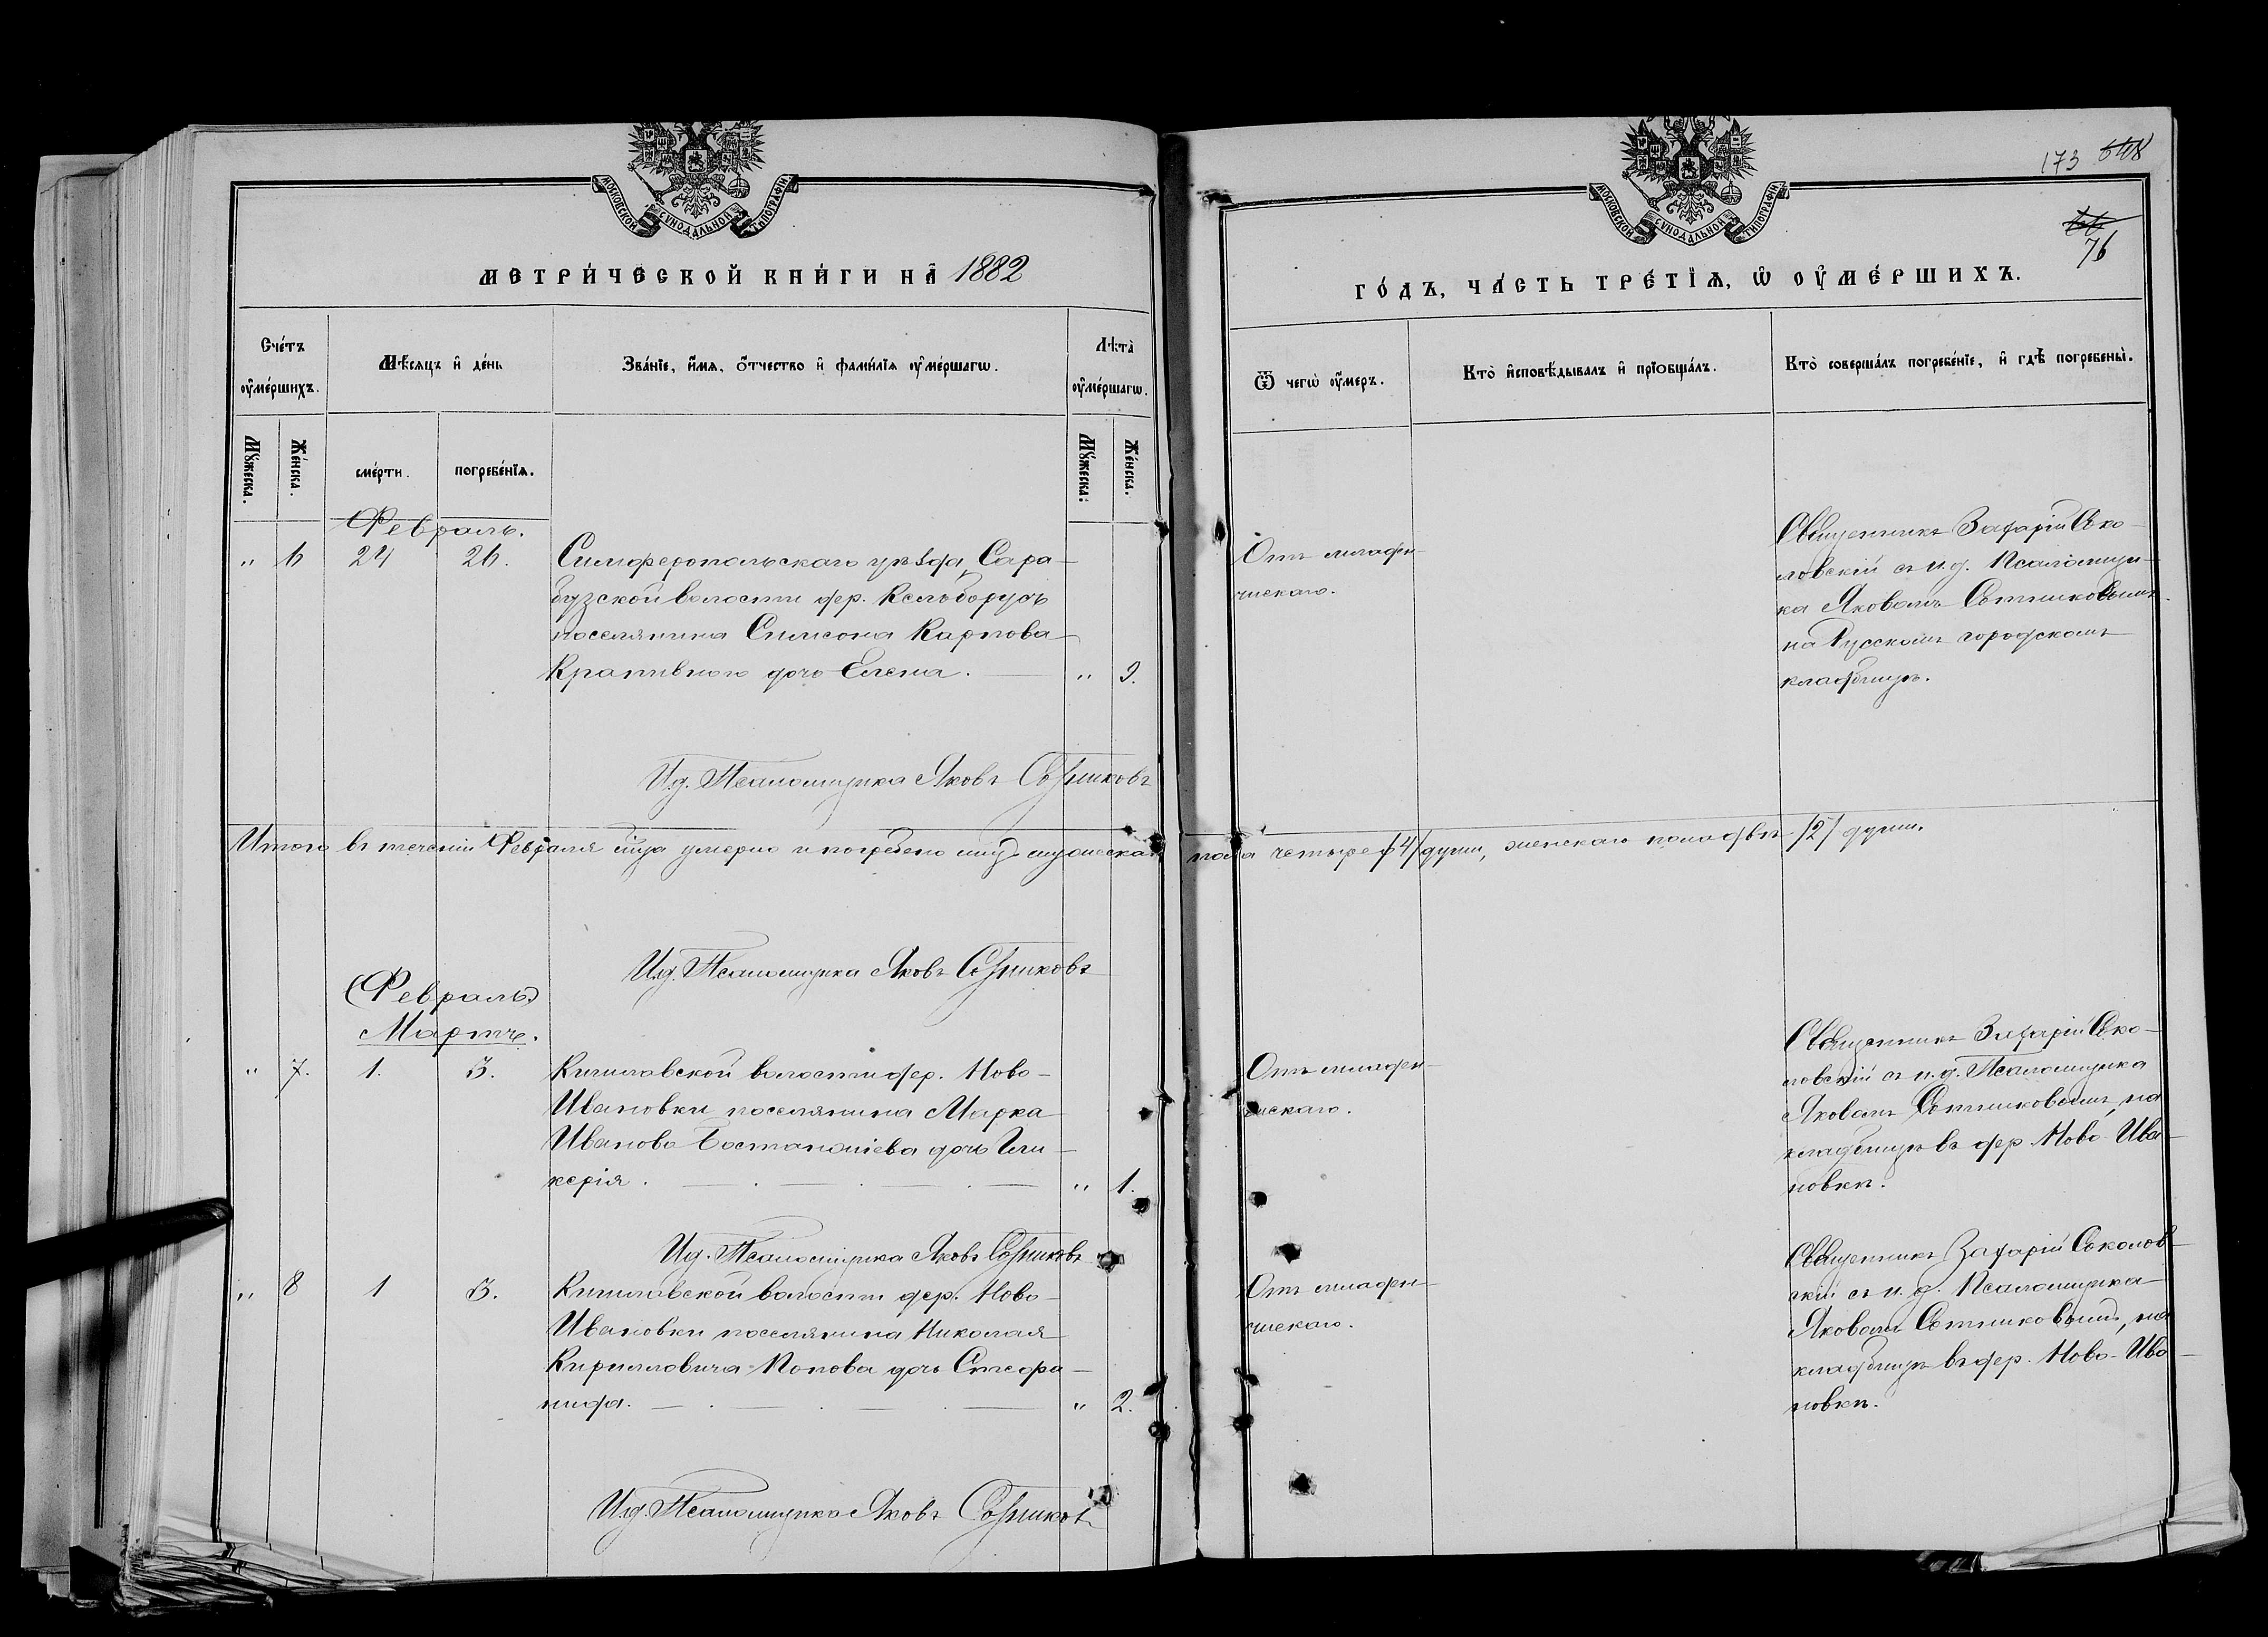 МОСКОВСКОЙ СѴНОДАЛЬНОЙ ТИПОГРАФІИ
МЕТРИ́ЧЕСКОЙ КНИ́ГИ НА̀ 1882
Счéтъ ᲂу҆мéршихъ.
Мѣ́сяцъ и҆ дéнь
Звáнїе, и҆́мя, ѻ҆́тчество и҆ фамѝлїя ᲂу҆мéршагѡ.
Лѣ̑та ᲂу҆мéршагѡ.
Мꙋ́жеска.
Жéнска.
смéрти.
погребéнїя.
Мꙋ́жеска.
Жéнска.
Февраль.
„ 6 24 26. Симферопольскаго уѣзда, Сара-
бузской волости дер.
поселянина Симеона Карпова
Крапивного дочь Елена. „ 9.
И.д. Псаломщика Яковъ Сотниковъ
Итого въ теченіи Февраля м̃ца умерло и погребено мужескаго
И.д. Псаломщика Яковъ Сотниковъ
(Февраль)
Мартъ.
„ 7. 1. 3. волости дер. Ново-
Ивановки поселянина Марка
Иванова дочь Гли-
керія. „ 1.
И.д. Псаломщика Яковъ Сотниковъ
„ 8 1 3. волости дер. Ново-
Ивановки поселянина Николая
Кирилловича Попова дочь Стефа-
нида. „ 2.
И.д. Псаломщика Яковъ Сотниковъ
МОСКОВСКОЙ СѴНОДАЛЬНОЙ ТИПОГРАФІИ
173 648
76
ГО́ДЪ, ЧА́СТЬ ТРЕ́ТЇѦ, Ѡ҆ ᲂУ҆МЕ́РШИХЪ.
Ѿ чегѡ̀ ᲂу҆́меръ.
Ктò и҆сповѣ́дывалъ и҆ прїѡбщáлъ.
Ктò совершáлъ погребéнїе, и҆ гдѣ̀ погребены̀.
Отъ младен-
ческаго.
Священникъ Захарій Соко-
ловскій съ и.д. Псаломщи-
ка Яковомъ Сотниковымъ
на Русскомъ городскомъ
кладбищѣ.
пола четыре /4/ души, женскаго пола двѣ /2/ души.
Отъ младен-
ческаго.
Священникъ Захарій Соко-
ловскій съ и.д. Псаломщика
Яковомъ Сотниковымъ, на
кладбищѣ въ дер. Ново-Ива-
новкѣ.
Отъ младен-
ческаго.
Священникъ Захарій Соколов-
скій съ и.д. Псаломщика
Яковомъ Сотниковымъ, на
кладбищѣ въ дер. Ново-Ива-
новкѣ.